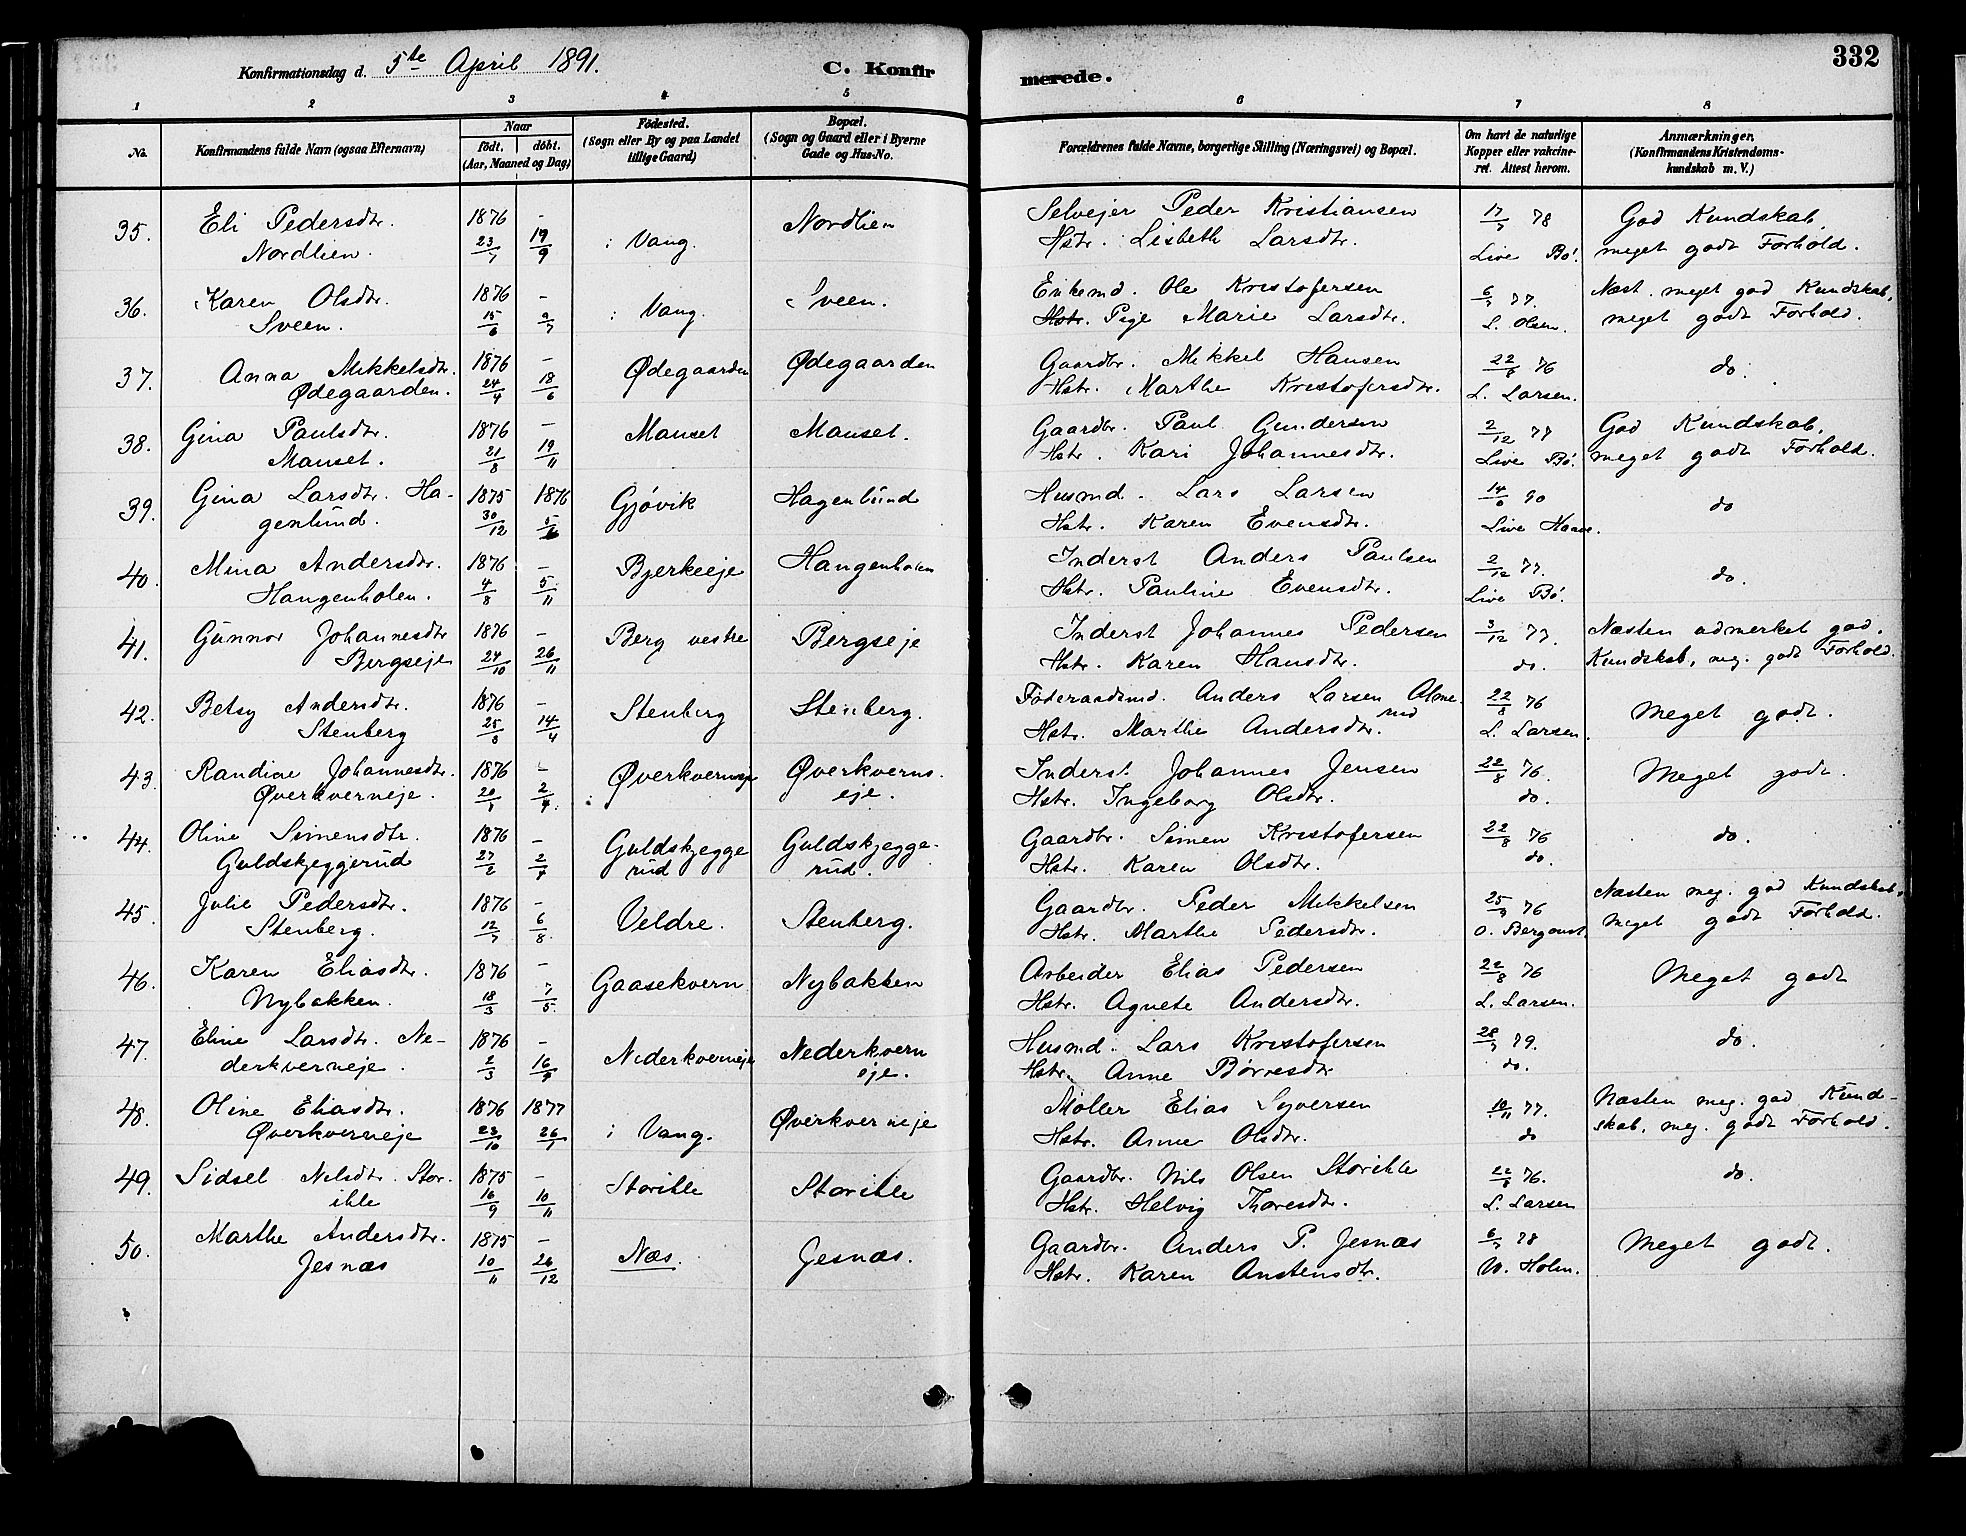 332
Konfirmationsdag d. 5te April 1891. C. Konfirmerede.
1 2 3 4 5 6 7 8
No. Konfirmandens fulde Navn (ogsaa Efternavn) Naar født. døbt. (Aar, Maaned og Dag) Fødested. (Sogn eller By og paa Landet tillige Gaard) Bopæl. (Sogn og Gaard eller i Byerne Gade og Hus-No. Forældrenes fulde Navne, borgerlige Stilling (Næringsvei) og Bopæl. Om havt de naturlige Kopper eller vakcineret. Attest herom. Anmærkninger. (Konfirmandens Kristendomskundskab m. V.)
35. Eli Pedersdtr. 1876 - i Vang. Nordlien Selvejer Peder Kristiansen 17/7 78 God Kundskab,
Nordlien. 23/7 19/9 Hstr. Lisbeth Larsdtr. Live Bø. meget godt Forhold.
36. Karen Olsdtr. 1876 - i Vang. Sveen. Enkemd. Ole Kristofersen 6/7 77. Næst. meget god Kundskab,
Sveen. 15/6 9/7 Hstr. Pige Marie Larsdtr. L. Olsen. meget godt Forhold.
37. Anna Mikkelsdtr. 1876 - Ødegaarden Ødegaarden Gaardbr. Mikkel Hansen 22/8 76 do.
Ødegaarden. 24/4 18/6 Hstr. Marthe Kristofersdtr. L. Larsen.
38. Gina Paulsdtr. 1876 - Manset Manset. Gaardbr. Paul Gundersen 2/12 77 God Kundskab,
Manset. 21/8 19/11 Hstr. Kari Johannesdtr. Live Bø. meget godt Forhold.
39. Gina Larsdtr. Ha- 1875 1876 Gjøvik Hagenlund Husmd. Lars Larsen 14/6 90 do
genlund. 30/12 5/6 Hstr. Karen Evensdtr. Live
40. Mina Andersdtr. 1876 - Bjerkeeje Hangenholen Inderst Anders Paulsen 2/12 77. do.
Hangenholen. 4/8 5/11 Hstr. Pauline Evensdtr. Live Bø.
41. Gunnor Johannesdtr 1876 - Berg vestre Bergseje Inderst Johannes Pedersen 3/12 77. Næsten udmerket god.
Bergseje 24/10 26/11 Hstr. Karen Hansdtr. do. Kundskab, meg. godt Forhold.
42. Betsy Andersdtr. 1876 - Stenberg Stenberg. Føderaadsmd. Anders Larsen Alme- 22/8 76 Meget godt.
Stenberg 25/3 14/4 Hstr. Marthe Andersdtr. rud L. Larsen.
43. Randine Johannesdtr. 1876 - Øverkverneje Øverkverns- Inderst. Johannes Jensen 22/8 76. Meget godt.
Øverkverneje. 20/1 2/4. eje. Hstr. Ingeborg Olsdtr. do.
44. Oline Simensdtr. 1876 - Guldskjegge Guldskjegge- Gaardbr. Simen Kristofersen 22/8 76 do.
Guldskjeggerud 27/2 2/4 rud rud. Hstr. Karen Olsdtr. do.
45. Julie Pedersdtr. 1876 - Veldre. Stenberg. Gaardbr. Peder Mikkelsen 25/9 76 Næsten meg. god Kundskab,
Stenberg. 12/7 6/8. Hstr. Marthe Pedersdtr. O. Bergquist. meget godt Forhold.
46. Karen Eliasdtr. 1876 - Gaasekvern Nybakken Arbeider Elias Pedersen 22/8 76 Meget godt
Nybakken. 18/3 7/5. Hstr. Agnete Andersdtr. L. Larsen.
47. Eline Larsdtr. Ne- 1876 - Nederkverneje Nederkvern Husmd. Lars Kristofersen 28/7 79. do.
derkverneje. 2/3 16/4 eje. Hstr. Anne Børresdtr do.
48. Oline Eliasdtr. 1876 1877 i Vang. Øverkverneje Møller Elias Syversen 10/11 77. Næsten meg. god Kund-
Øverkverneje 23/10 26/1 Hstr. Anne Olsdtr. do skab, meg. godt Forhold.
49. Sidsel Nilsdtr. Stor- 1875 - Storihle Storihle Gaardbr. Nils Olsen Storihle 22/8 76. do.
ihle 16/9 10/11 Hstr. Helvig Thoresdtr. L. Larsen
50. Marthe Andersdtr. 1875 - Næs. Gesnæs. Gaardbr. Anders P. Jesnæs 6/7 78 Meget godt.
Jesnæs 10/11 26/12 Hstr. Karen Anstensdtr. W. Holm.